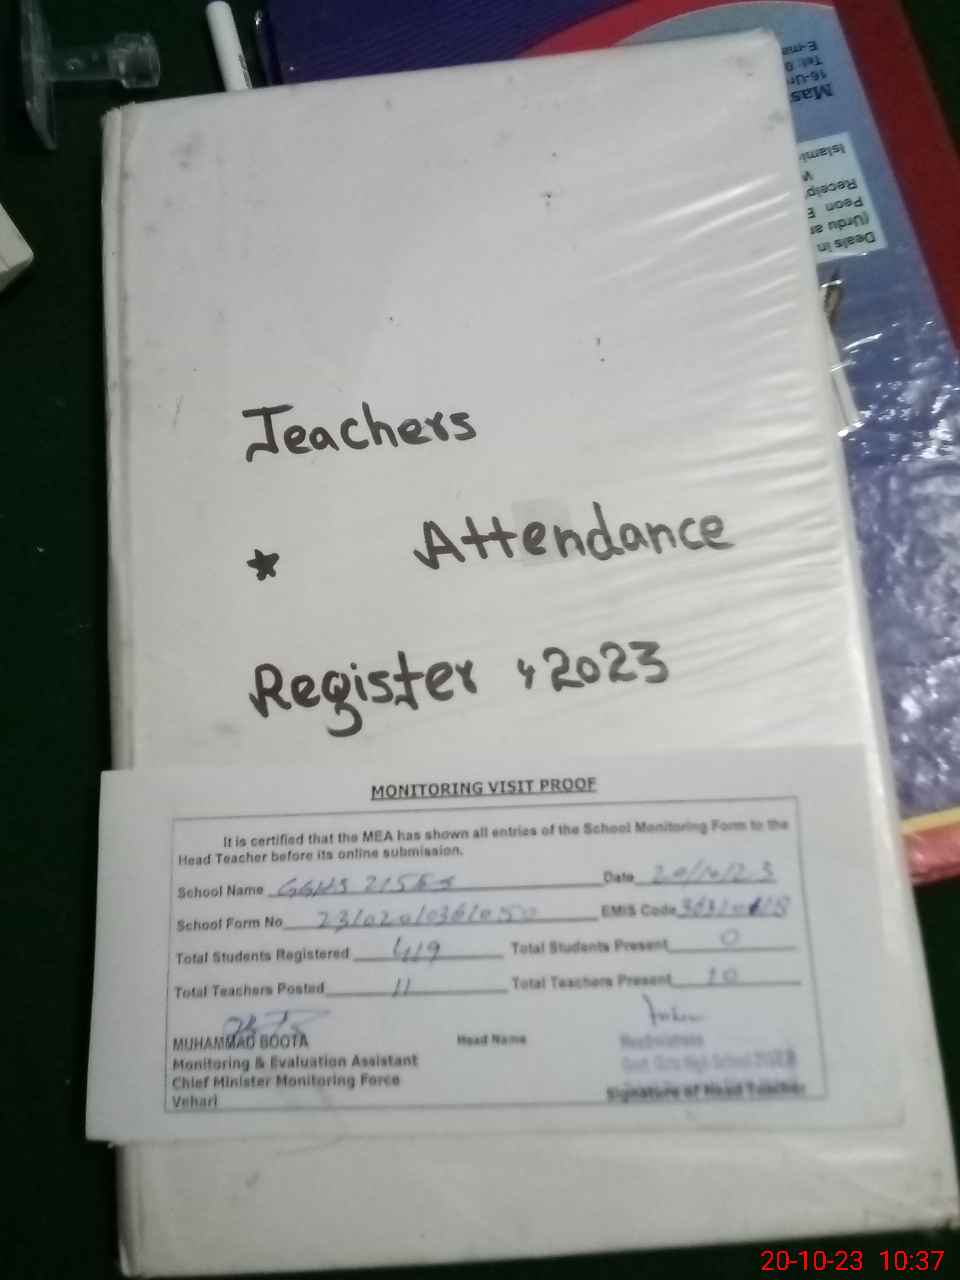 E-ma
Tel: 0
16-Ur
Mas
Islami
Receip
Peon
(Urdu ar
Deals in
Teachers
Attendance
Register , 2023
MONITORING VISIT PROOF
It is certified that the MEA has shown all entries of the School Monitoring Form to the
Head Teacher before its online submission.
School Name GGHS Date 20/10/23
School Form No EMIS Code
Total Students Registered 419 Total Students Present 0
Total Teachers Posted 11 Total Teachers Present 10
MUHAMMAD BOOTA Head Name
Monitoring & Evaluation Assistant
Chief Minister Monitoring Force
Vehari Signature of Head Teacher
20-10-23 10:37